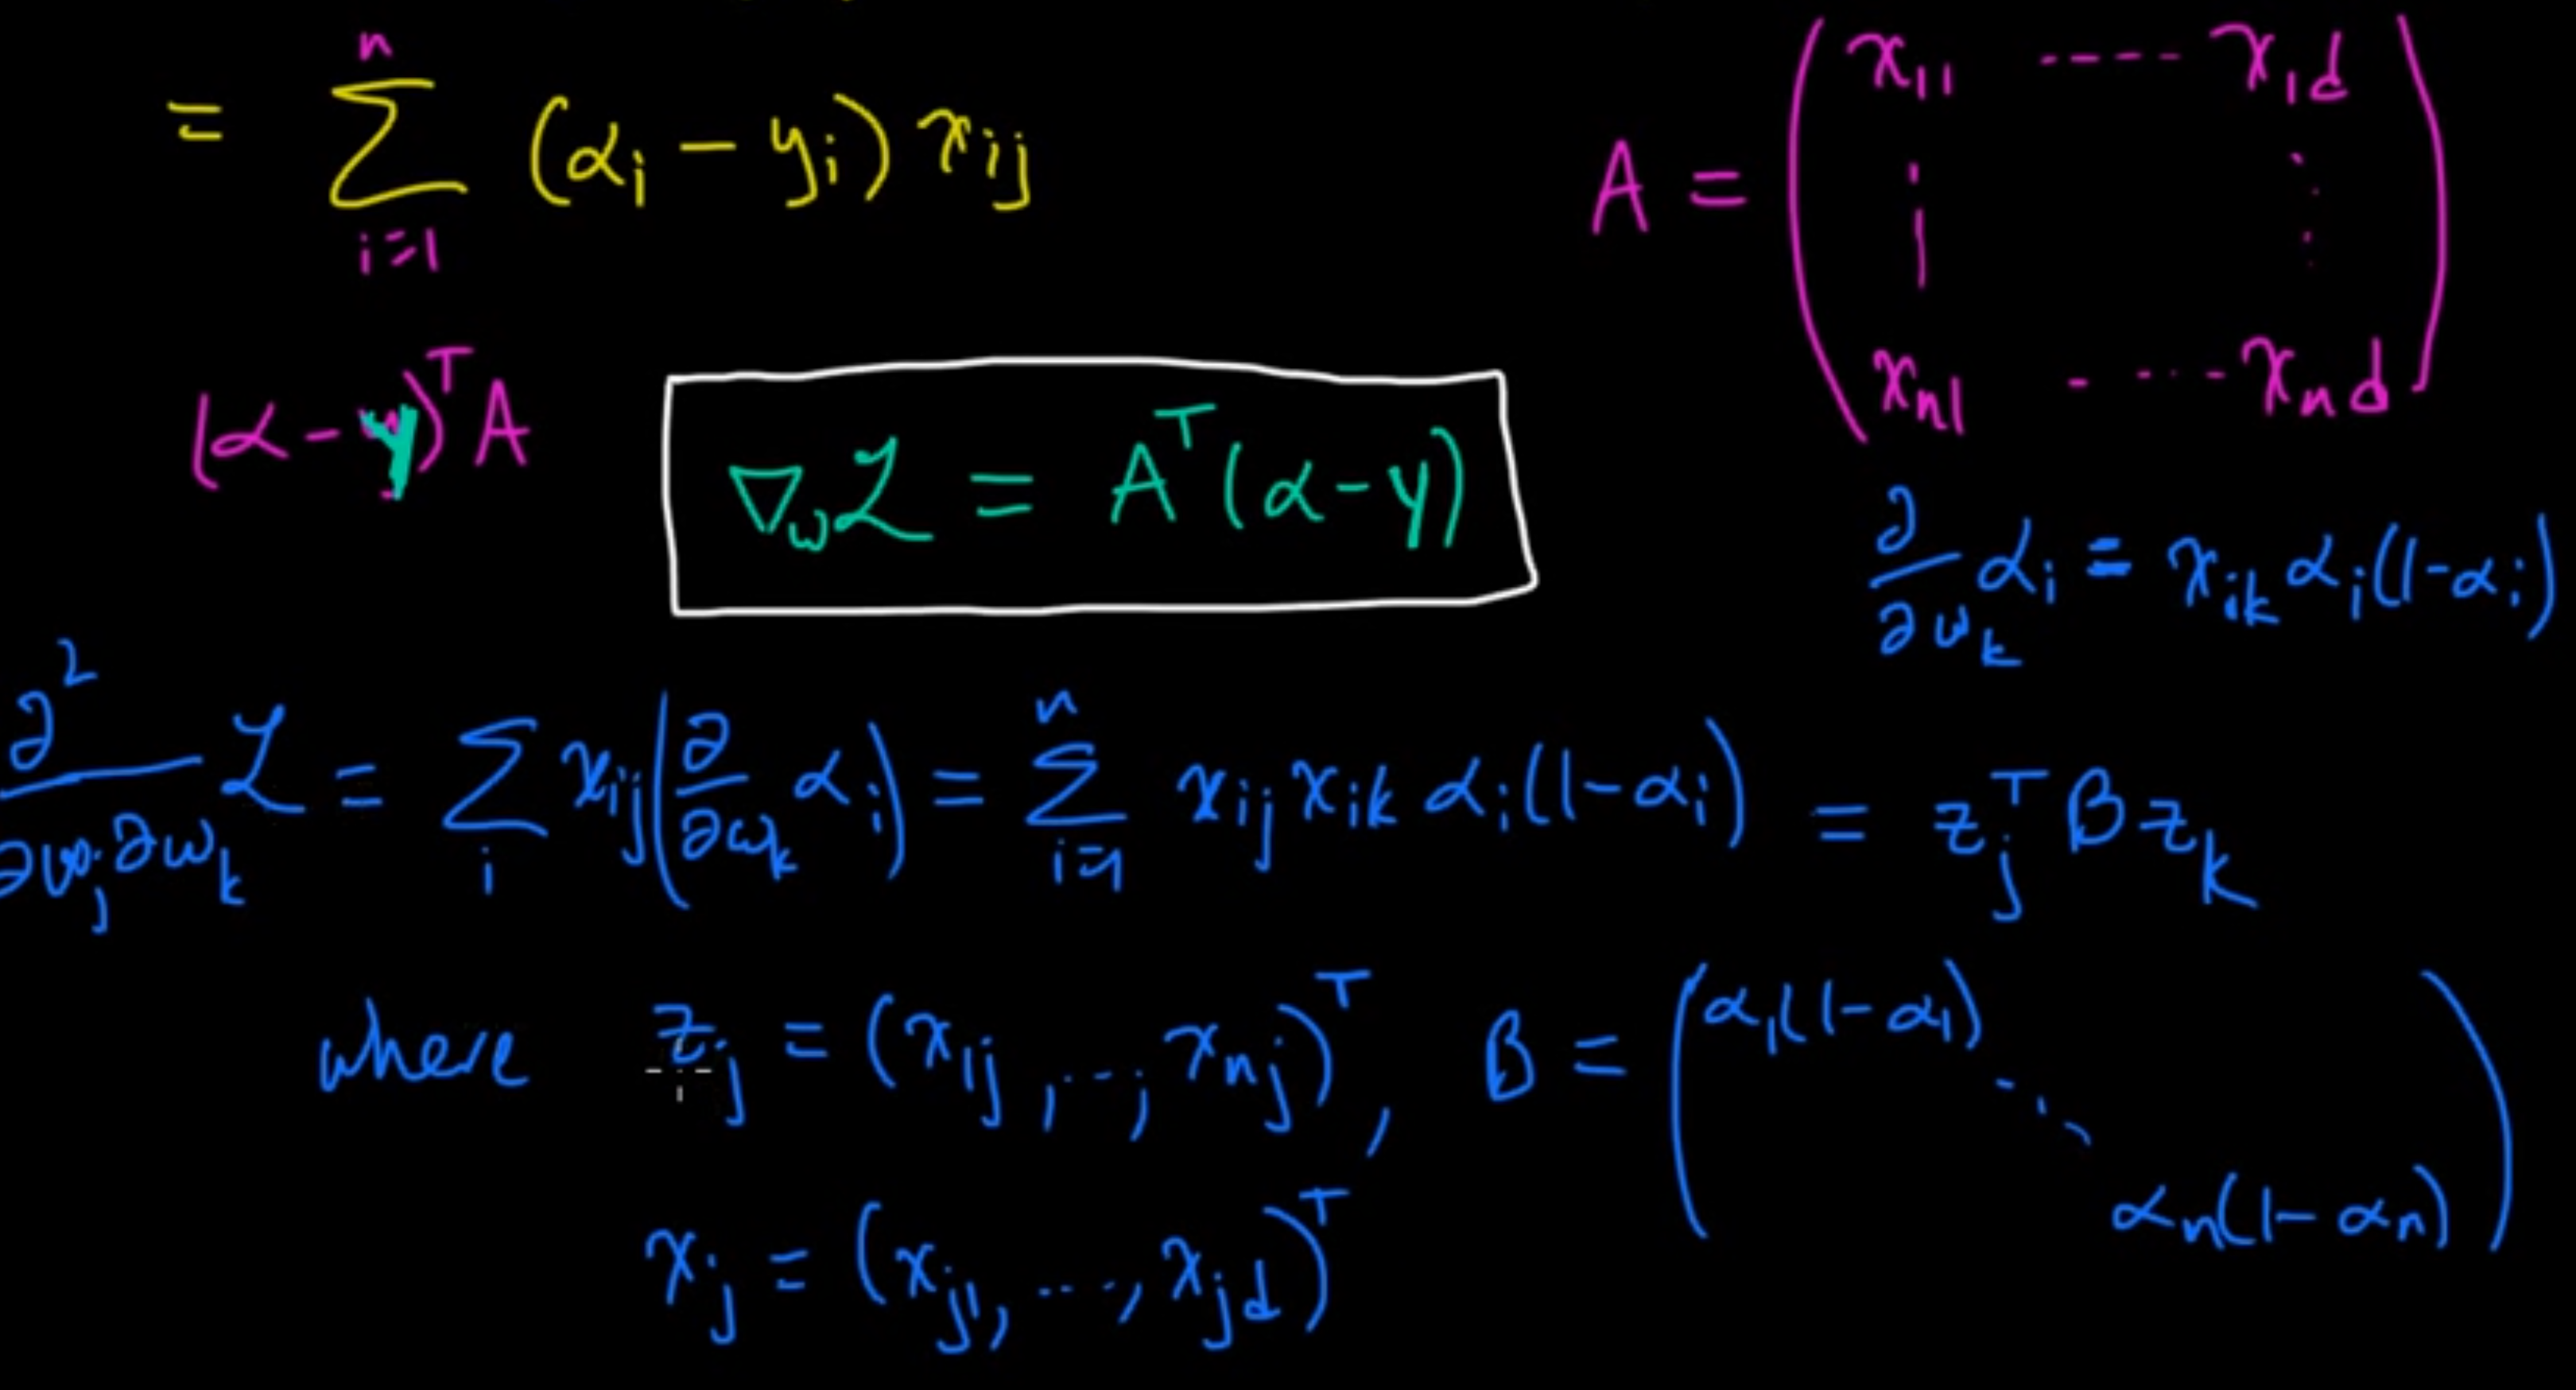 = \sum_{i=1}^{n} (α_i - y_i) x_{ij}
A = \begin{pmatrix} x_{11} & ---- & x_{1d} \\ \vdots & & \vdots \\ x_{n1} & ---- & x_{nd} \end{pmatrix}
(α - y)^T A
∇_w ℒ = A^T (α - y)
\frac{∂}{∂w_k} α_i = x_{ik} α_i (1 - α_i)
\frac{∂^2}{∂w_j ∂w_k} ℒ = \sum_i x_{ij} (\frac{∂}{∂w_k} α_i) = \sum_{i=1}^{n} x_{ij} x_{ik} α_i (1 - α_i) = z_j^T B z_k
where z_j = (x_{1j}, ..., x_{nj})^T, B = \begin{pmatrix} α_1(1 - α_1) & & \\ & \ddots & \\ & & α_n(1 - α_n) \end{pmatrix}
x_j = (x_{j1}, ..., x_{jd})^T